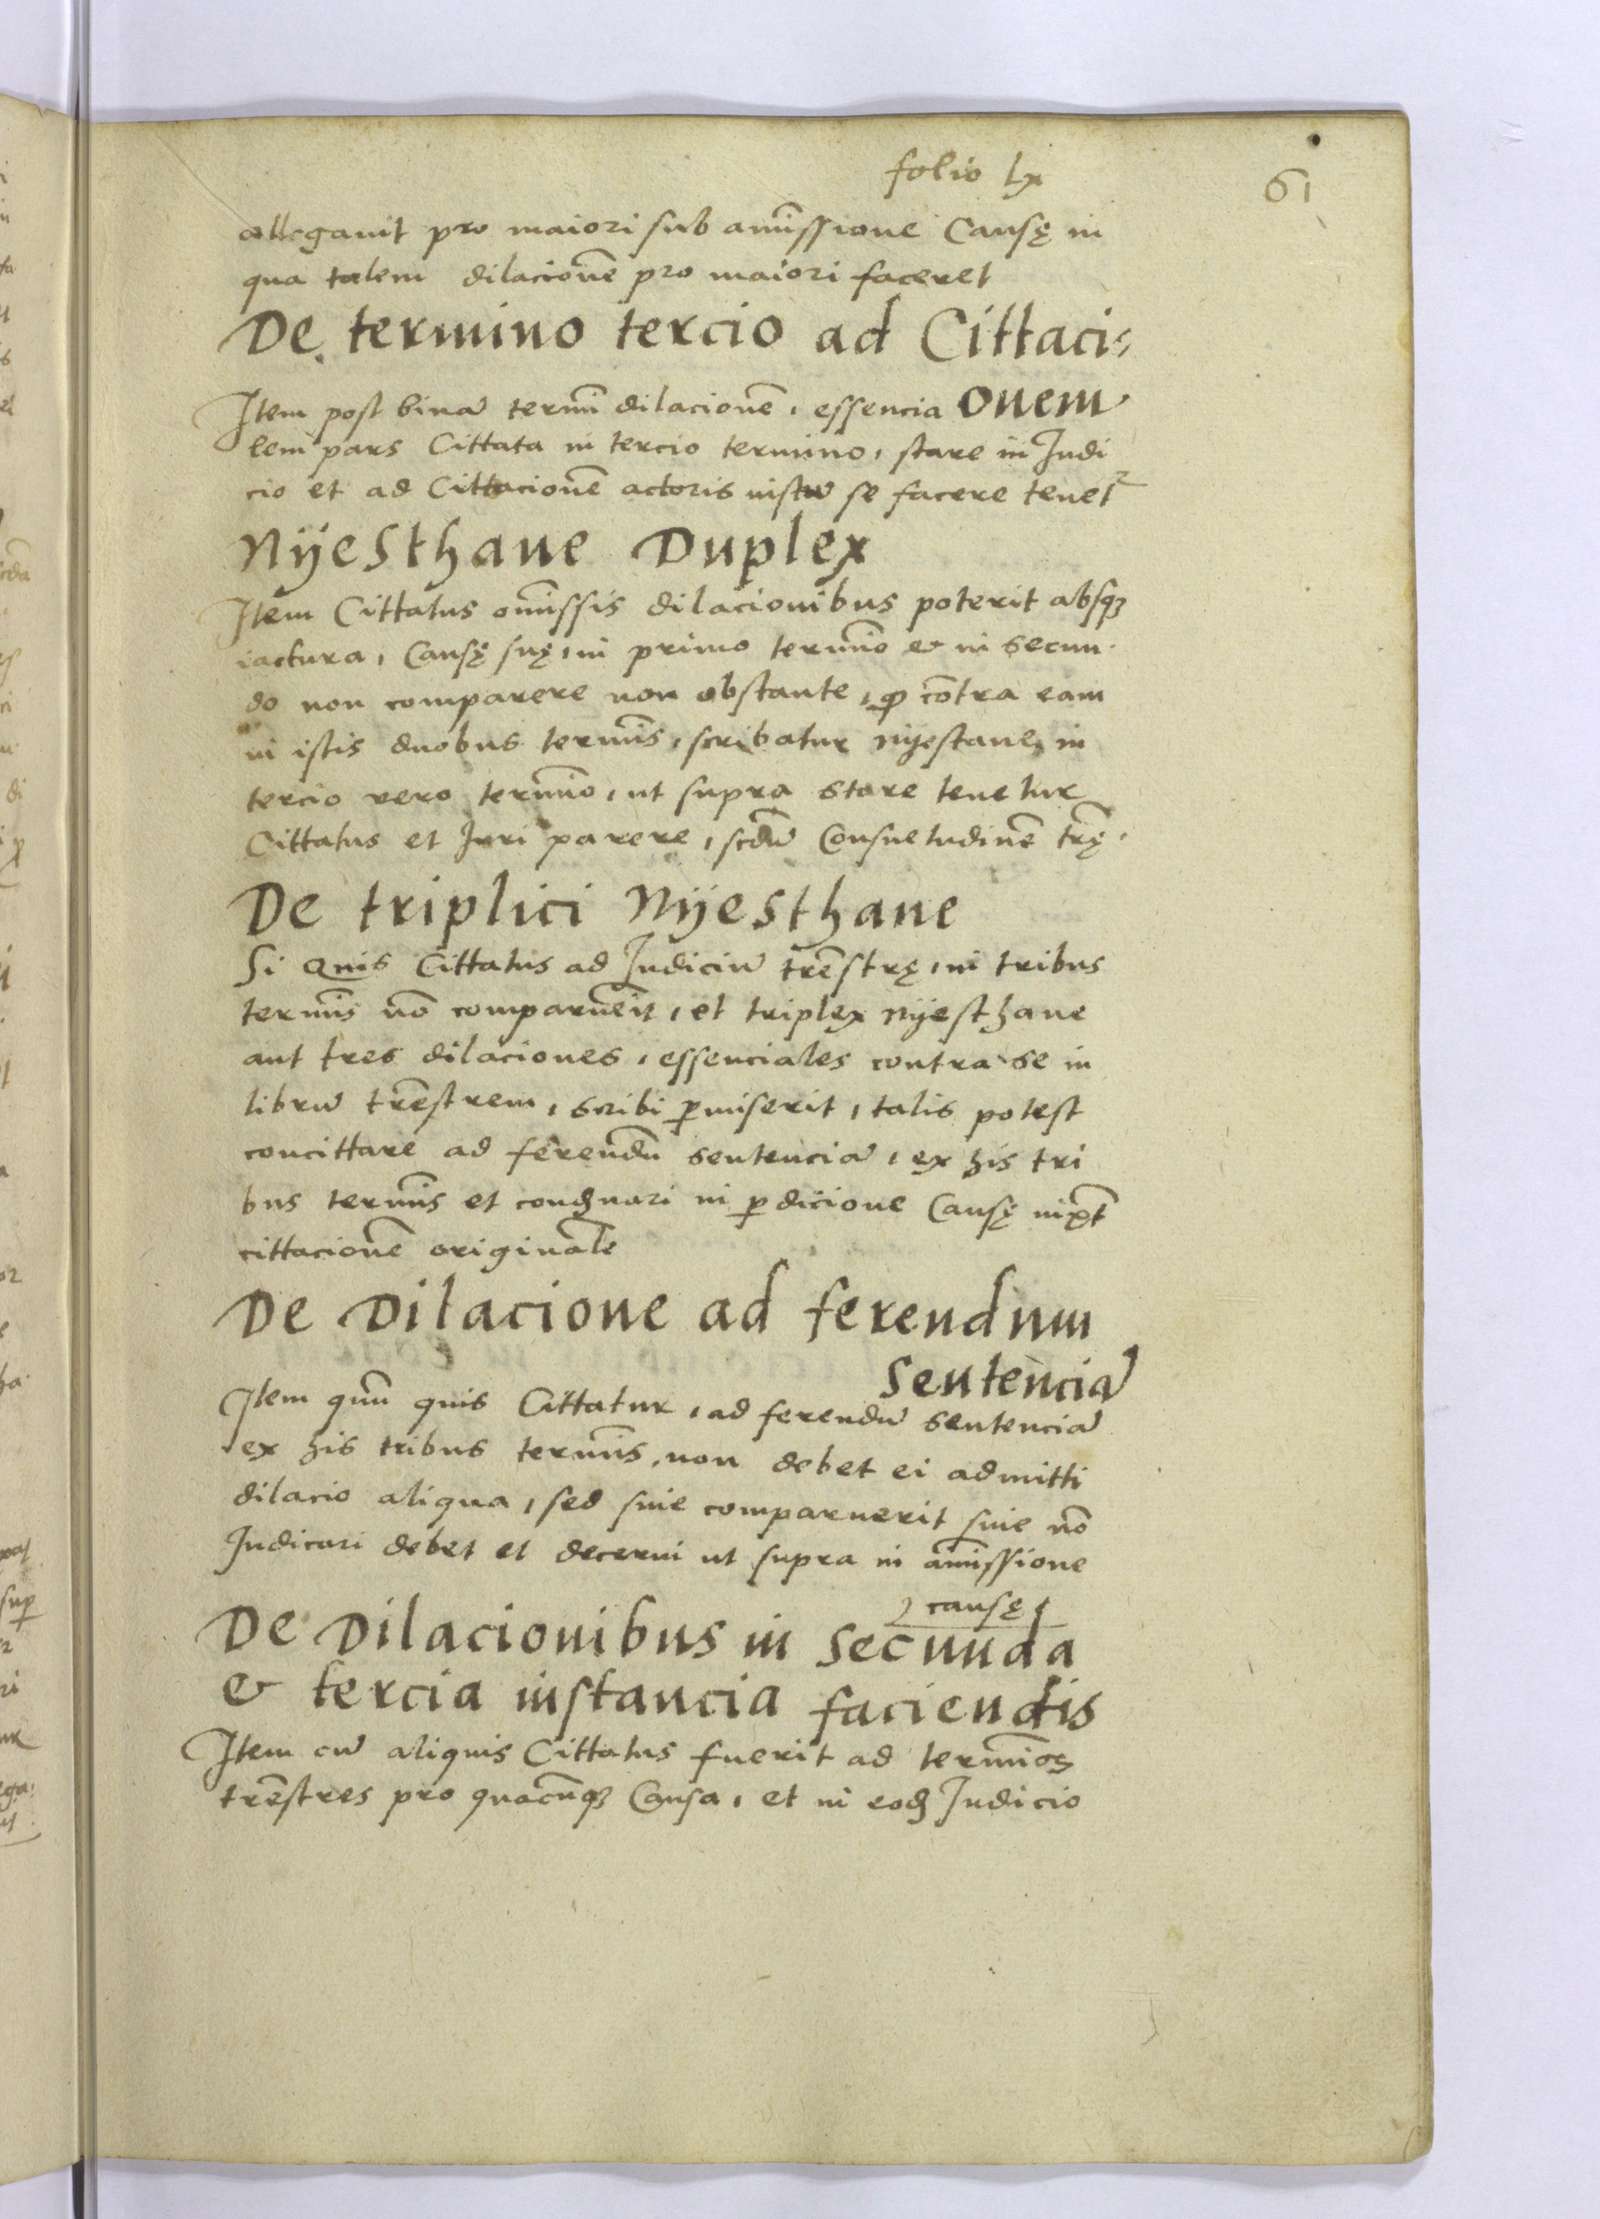 folio lx
61
allegauit pro maiori sub amı̃ssione Causę in
qua talem dilacionẽ pro maiori faceret
De termino tercio ad Cittaci-
Item post binã termĩ dilacionẽ, essencia onem
lem pars Cittata in tercio termino, stare in Judi
cio et ad Cittacionẽ actoris iustũ se facere tenet̃
Nÿesthane Duplex
Item Cittatus omı̃ssis dilacionibus poterit absqꝫ
iactura, Causę suę, in primo termı̃o & in secun
do non comparere non obstante, ꝙ cõtra eam
in istis duobus termı̃s, scribatur nÿestane, in
tercio vero termı̃no, ut supra stare tenetur
Cittatus et Juri parere, scdũ Consuetudinẽ tr̃ę.
De triplici Nÿesthane
Si Quis Cittatus ad Judiciũ trẽstrę, in tribus
termı̃s nõ comparuerit, et triplex nÿesthane
aut tres dilaciones, essenciales contra se in
librũ trẽstrem, scribi ꝑmiserit, talis potest
concittare ad ferendũ sentenciã, ex his tri
bus termı̃s et condꝫnari in ꝑdicione Causę iuxt̃
cittacionẽ originalẽ
De Dilacione ad ferendum
Sentenciã
Item quũ quis Cittatur, ad ferendũ sentenciã
ex his tribus termı̃s, non debet ei admitti
dilacio aliqua, sed siue comparuerit siue nõ
Judicari debet et decerni ut supra in amı̃ssione
causę
De Dilacionibus in Secunda
& tercia instancia faciendis
Item cũ aliquis Cittatus fuerit ad termı̃os
trẽstres pro quacũqꝫ Causa, et in eodꝫ Judicio